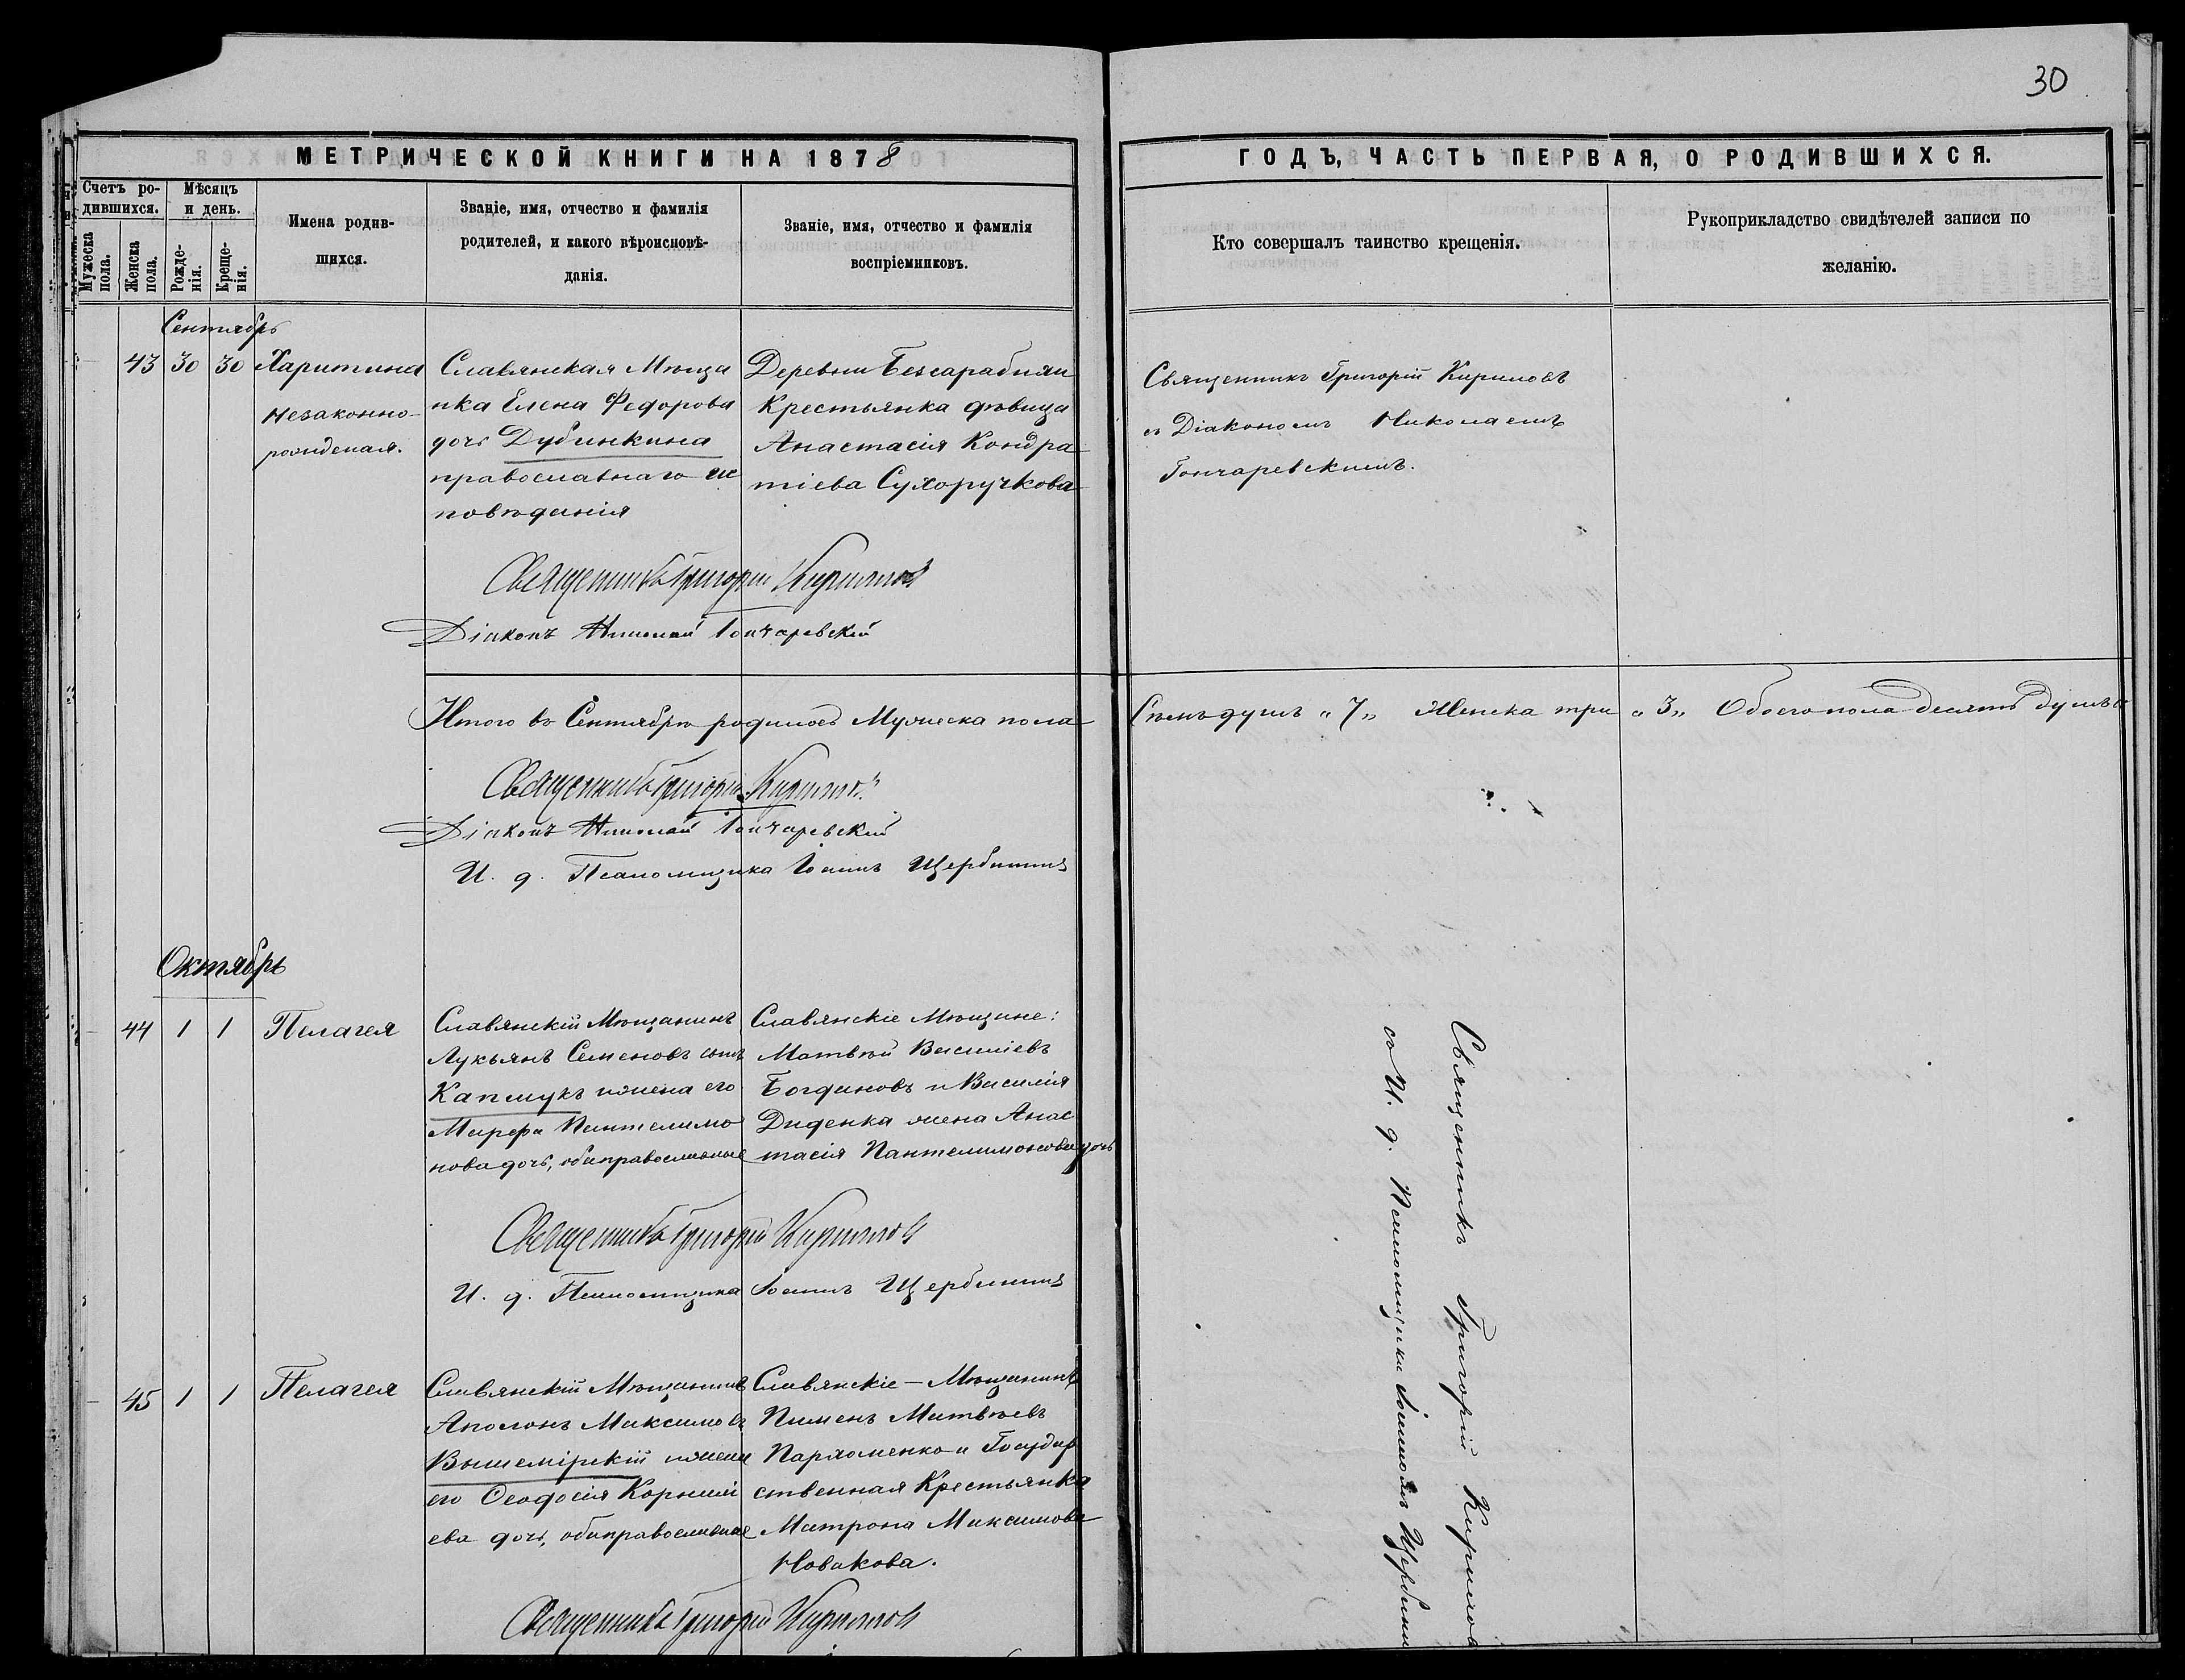 30
МЕТРИЧЕСКОЙ КНИГИ НА 1878
ГОДЪ, ЧАСТЬ ПЕРВАЯ, О РОДИВШИХСЯ.
Счетъ ро-
дившихся.
Мужеска
пола.
Женска
пола.
Мѣсяцъ
и день.
Рожде-
нія.
Креще-
нія.
Имена родив-
шихся.
Званіе, имя, отчество и фамилія
родителей, и какого вѣроисповѣ-
данія.
Званіе, имя, отчество и фамилія
воспріемниковъ.
Кто совершалъ таинство крещенія.
Рукоприкладство свидѣтелей записи по
желанію.
Сентябрь
43 30 30
Харитина
незаконно-
рожденая.
Славянская Мѣща
нка Елена Федорова
дочь Дубинкина
православнаго ис
повѣданія
Деревни Безсарабпяи
Крестьянка дѣвица
Анастасія Кондра
тіева Сухоручкова
Священникъ Григорій Кириловъ
съ Діакономъ Николаемъ
Гончаревскимъ.
Священникъ Григорій Кириловъ
Діаконъ Николай Гончаревскій
Итого въ Сентябрѣ родилось Мужеска пола
Семь душъ „7„ Женска три „3„ Обоего пола десять душъ
Священникъ Григорій Кириловъ
Діаконъ Николай Гончаревскій
И. д. Псаломщика Іоаннъ Щербининъ
Октябрь
44 1 1
Пелагея
Славянскій Мѣщанинъ
Лукьянъ Семеновъ сынъ
Капмукъ и жена его
Марфа Пантелимо
нова дочь, оба православные
Славянскіе Мѣщане:
Матвѣй Василіевъ
Богдановъ и Василія
Диденка жена Анас
тасія Пантелимонова дочь
Священникъ Григорій Кириловъ
И. д. Псаломщика Іоаннъ Щербининъ
45 1 1
Пелагея
Славянскій Мѣщанинъ
Аполонъ Максимовъ
Вышемірскій и жена
его Ѳеодосія Корнилі
ева дочь, оба православные
Славянскіе – Мѣщанинъ
Пименъ Матвѣевъ
Пархоменко и Государ
ственная Крестьянка
Матрона Максимова
Новакова.
Священникъ Григорій Кириловъ
Священникъ Григорій Кириловъ
съ И. д. Псаломщика Іоанномъ Щербини